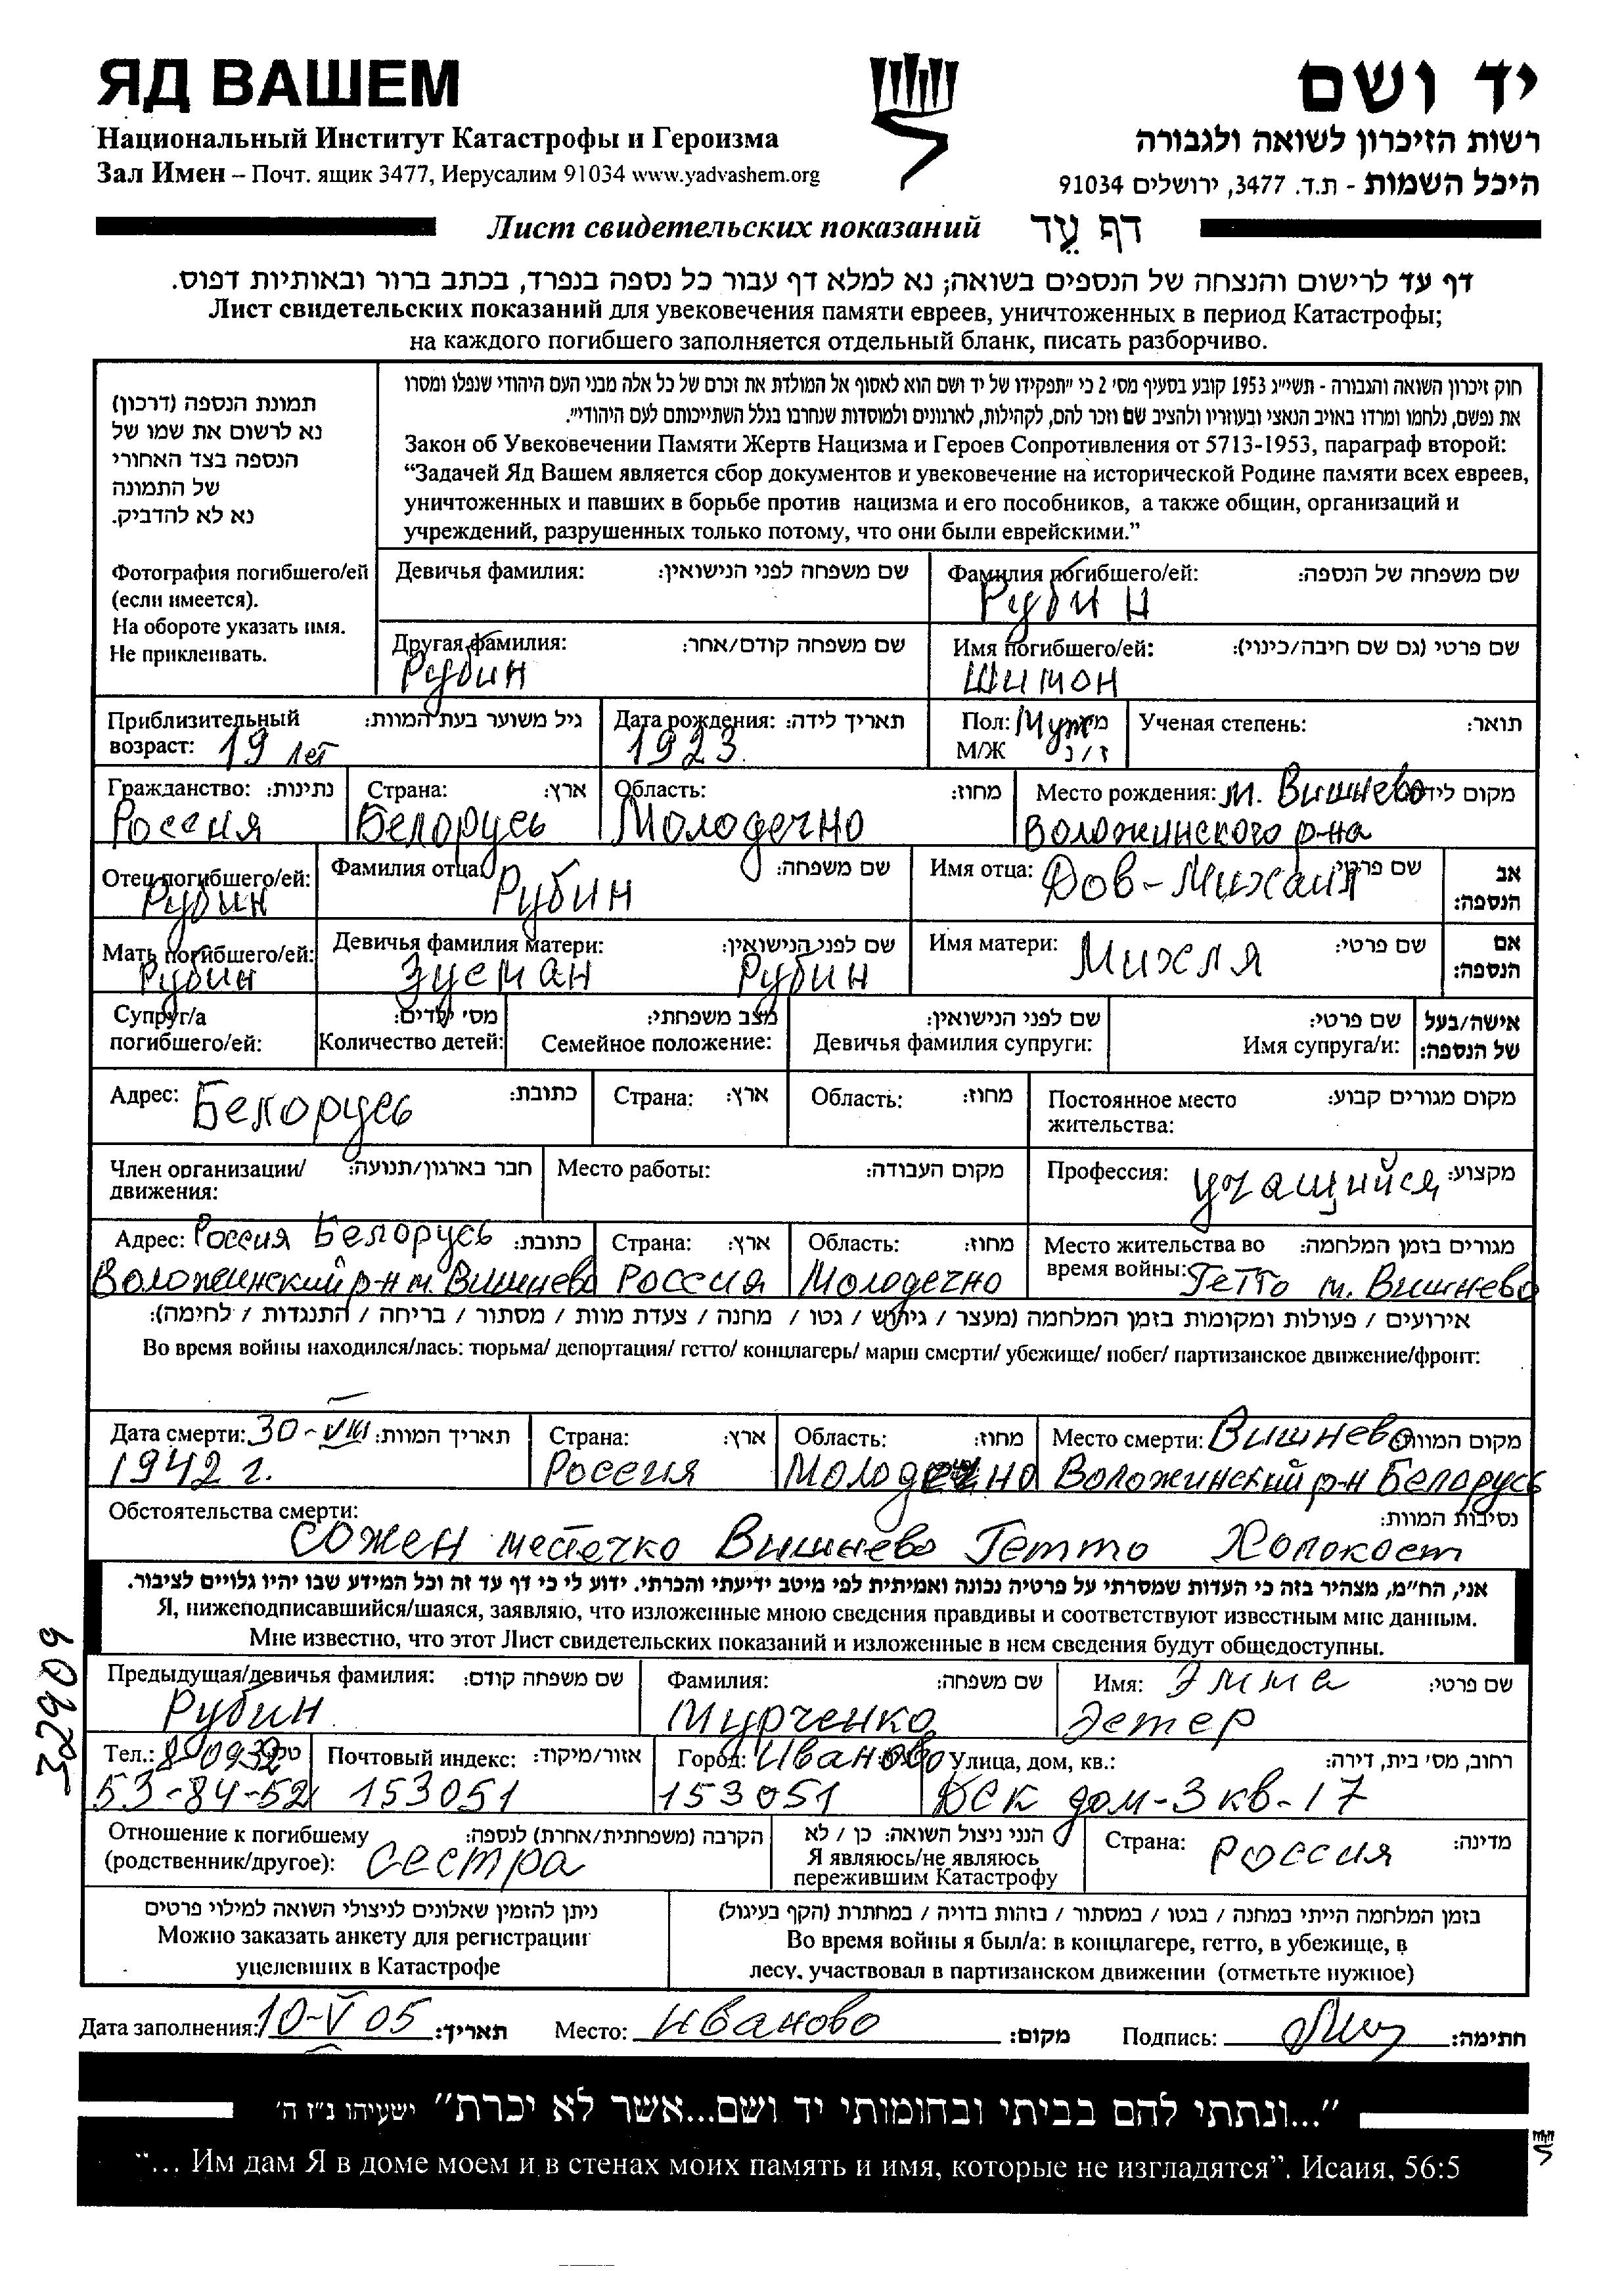 ЯД ВАШЕМ
יד ושם
Национальный Институт Катастрофы и Героизма
רשות הזיכרון לשואה ולגבורה
Зал Имен – Почт. ящик 3477, Иерусалим 91034 www.yadvashem.org
היכל השמות - ת.ד. 3477, ירושלים 91034
Лист свидетельских показаний דף עֵד
דף עד לרישום והנצחה של הנספים בשואה; נא למלא דף עבור כל נספה בנפרד, בכתב ברור ובאותיות דפוס.
Лист свидетельских показаний для увековечения памяти евреев, уничтоженных в период Катастрофы;
на каждого погибшего заполняется отдельный бланк, писать разборчиво.
תמונת הנספה (דרכון)
נא לרשום את שמו של
הנספה בצד האחורי
של התמונה
נא לא להדביק.
Фотография погибшего/ей
(если имеется).
На обороте указать имя.
Не приклеивать.
חוק זיכרון השואה והגבורה - תשי״ג 1953 קובע בסעיף מס׳ 2 כי ״תפקידו של יד ושם הוא לאסוף אל המולדת את זכרם של כל אלה מבני העם היהודי שנפלו ומסרו
את נפשם, נלחמו ומרדו באויב הנאצי ובעוזריו ולהציב שם וזכר להם, לקהילות, לארגונים ולמוסדות שנחרבו בגלל השתייכותם לעם היהודי״.
Закон об Увековечении Памяти Жертв Нацизма и Героев Сопротивления от 5713-1953, параграф второй:
“Задачей Яд Вашем является сбор документов и увековечение на исторической Родине памяти всех евреев,
уничтоженных и павших в борьбе против нацизма и его пособников, а также общин, организаций и
учреждений, разрушенных только потому, что они были еврейскими.”
Девичья фамилия: שם משפחה לפני הנישואין:
Фамилия погибшего/ей: שם משפחה של הנספה:
Рубин
Другая фамилия: שם משפחה קודם/אחר:
Рубин
Имя погибшего/ей: שם פרטי (גם שם חיבה/כינוי):
Шимон
Приблизительный גיל משוער בעת המוות:
возраст: 19 лет
Дата рождения: תאריך לידה:
1923
Пол: Муж
М/Ж ז/נ
Ученая степень: תואר:
Гражданство: נתינות:
Россия
Страна: ארץ:
Белорусь
Область: מחוז:
Молодечно
Место рождения: м. Вишнево
Воложинского р-на
Отец погибшего/ей:
Рубин
Фамилия отца: שם משפחה:
Рубин
Имя отца: Дов-Михаил שם פרטי:
אב
הנספה:
Мать погибшего/ей:
Рубин
Девичья фамилия матери: שם לפני הנישואין:
Зусман Рубин
Имя матери: Михля שם פרטי:
אם
הנספה:
Супруг/а
погибшего/ей:
מס׳ ילדים:
Количество детей:
מצב משפחתי:
Семейное положение:
שם לפני הנישואין:
Девичья фамилия супруги:
שם פרטי:
Имя супруга/и:
אישה/בעל
של הנספה:
Адрес: Белорусь כתובת:
Страна: ארץ:
Область: מחוז:
Постоянное место מקום מגורים קבוע:
жительства:
Член организации/ חבר בארגון/תנועה:
движения:
Место работы: מקום העבודה:
Профессия: учащийся מקצוע:
Адрес: Россия Белорусь כתובת:
Воложинский р-н м. Вишнево
Страна: ארץ:
Россия
Область: מחוז:
Молодечно
Место жительства во מגורים בזמן המלחמה:
время войны: Гетто м. Вишнево
אירועים / פעולות ומקומות בזמן המלחמה (מעצר / גירוש / גטו / מחנה / צעדת מוות / מסתור / בריחה / התנגדות / לחימה):
Во время войны находился/лась: тюрьма/ депортация/ гетто/ концлагерь/ марш смерти/ убежище/ побег/ партизанское движение/фронт:
Дата смерти: 30-VIII תאריך המוות:
1942 г.
Страна: ארץ:
Россия
Область: מחוז:
Молодечно
Место смерти: Вишнево מקום המוות:
Воложинский р-н Белорусь
Обстоятельства смерти: נסיבות המוות:
сожен местечко Вишнево Гетто Холокост
אני, הח״מ, מצהיר בזה כי העדות שמסרתי על פרטיה נכונה ואמיתית לפי מיטב ידיעתי והכרתי. ידוע לי כי דף עד זה וכל המידע שבו יהיו גלויים לציבור.
Я, нижеподписавшийся/шаяся, заявляю, что изложенные мною сведения правдивы и соответствуют известным мне данным.
Мне известно, что этот Лист свидетельских показаний и изложенные в нем сведения будут общедоступны.
32909
Предыдущая/девичья фамилия: שם משפחה קודם:
Рубин
Фамилия: שם משפחה:
Мурченко
Имя: Эмма שם פרטי:
Эстер
Тел.: 8-0932
53-84-52
Почтовый индекс: אזור/מיקוד:
153051
Город: Иваново
153051
Улица, дом, кв.: רחוב, מס׳ בית, דירה:
ДСК дом-3 кв-17
Отношение к погибшему הקרבה (משפחתית/אחרת) לנספה:
(родственник/другое): сестра
הנני ניצול השואה: כן / לא
Я являюсь/не являюсь
пережившим Катастрофу
Страна: Россия מדינה:
ניתן להזמין שאלונים לניצולי השואה למילוי פרטים
Можно заказать анкету для регистрации
уцелевших в Катастрофе
בזמן המלחמה הייתי במחנה / בגטו / במסתור / בזהות בדויה / במחתרת (הקף בעיגול)
Во время войны я был/а: в концлагере, гетто, в убежище, в
лесу, участвовал в партизанском движении (отметьте нужное)
Дата заполнения: 10-V 05 תאריך: Место: Иваново מקום: Подпись: חתימה:
״...ונתתי להם בביתי ובחומותי יד ושם...אשר לא יכרת״ ישעיהו נ״ו ה׳
“... Им дам Я в доме моем и в стенах моих память и имя, которые не изгладятся”. Исаия, 56:5